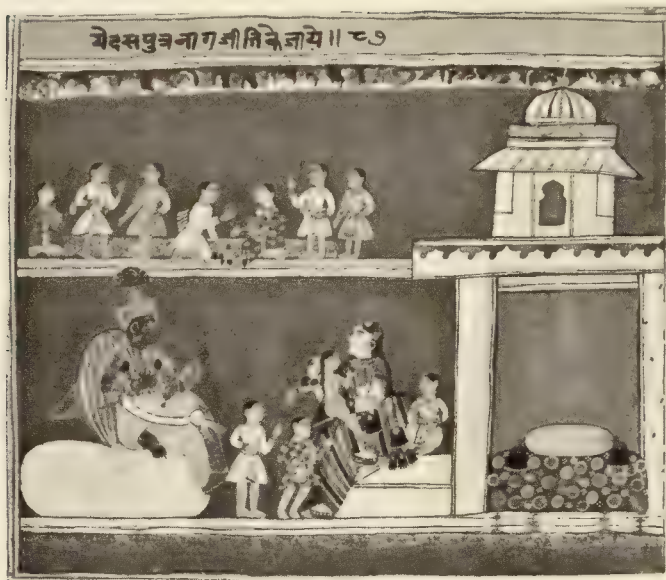 येदसपुत्रनागजीतिकेजाये॥ ८७